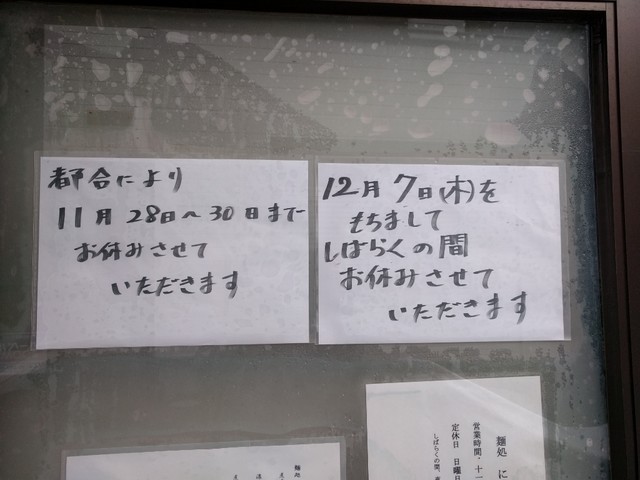 都合により
11月28日～30日まで
お休みさせて
いただきます
12月7日(木)を
もちまして
しばらくの間
お休みさせて
いただきます
麺処 に
営業時間・十一
定休日 日曜日
しばらくの間、
麺処